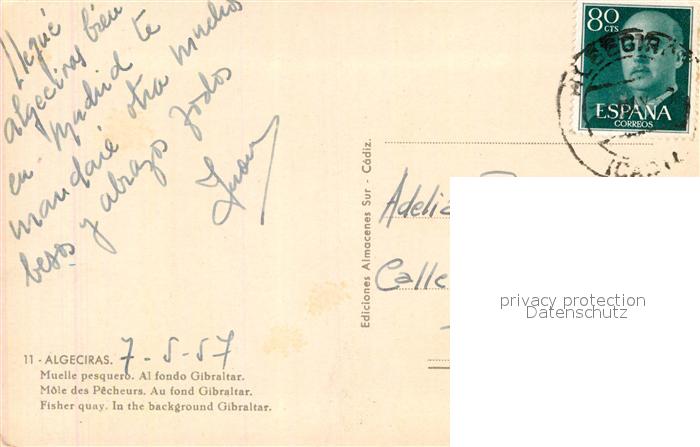 llegué
algeciras bien
en Madrid te
mandaré otra muchos
besos y abrazos Todos
Juan
80
CTS
ESPAÑA
CORREOS
ALGECIRAS
(CADIZ
Ediciones Almacenes Sur - Cádiz.
Adelia
Calle
privacy protection
Datenschutz
11 - ALGECIRAS. 7-5-57
Muelle pesquero. Al fondo Gibraltar.
Môle des Pêcheurs. Au fond Gibraltar.
Fisher quay. In the background Gibraltar.